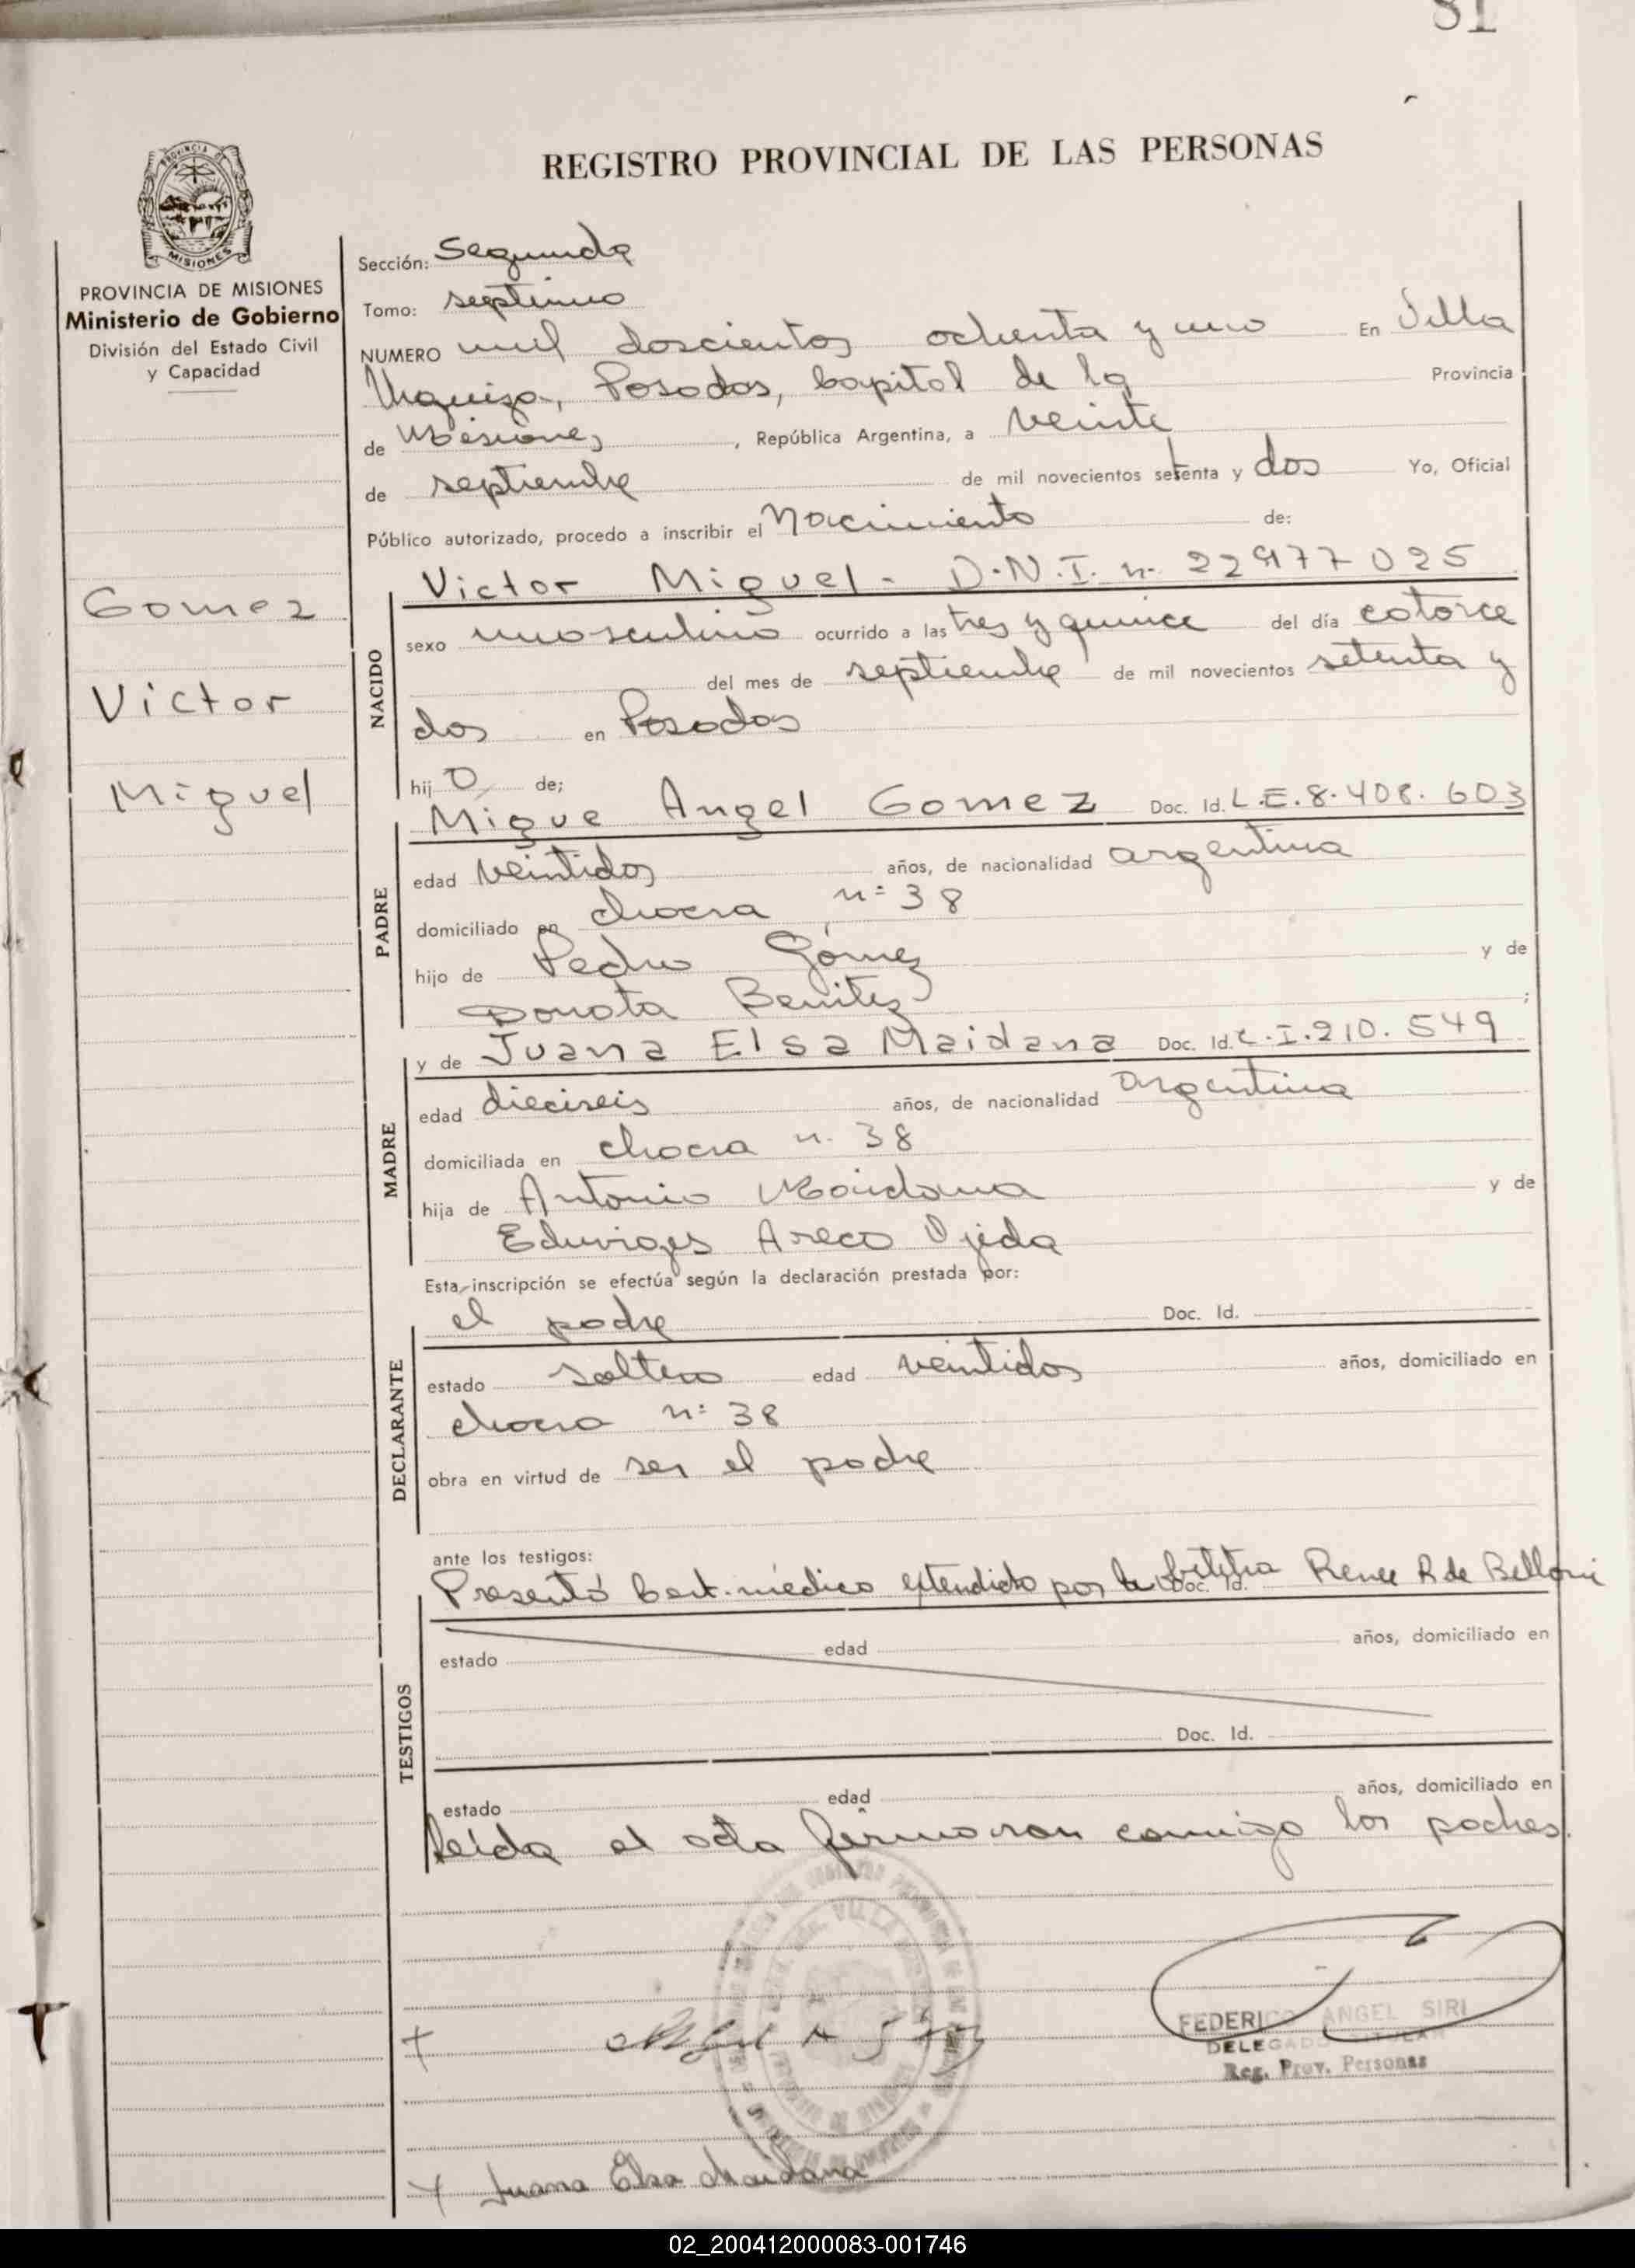 81
REGISTRO PROVINCIAL DE LAS PERSONAS
PROVINCIA DE MISIONES
Ministerio de Gobierno
División del Estado Civil
y Capacidad
Gomez
Victor
Miguel
Sección: Segunda
Tomo: septimo
NUMERO mil doscientos ochenta y uno En Villa
Urquiza, Posadas, Capital de la Provincia
de Misiones, República Argentina, a veinte
de septiembre de mil novecientos setenta y dos Yo, Oficial
Público autorizado, procedo a inscribir el Nacimiento de:
Victor Miguel - D.N.I. n. 22977025
NACIDO
sexo masculino ocurrido a las tres y quince del día catorce
del mes de septiembre de mil novecientos setenta y
dos en Posadas
hijo de;
Migue Angel Gomez Doc. Id. L.E. 8.408.603
PADRE
edad veintidos años, de nacionalidad argentina
domiciliado en chacra n° 38
hijo de Pedro Gómez y de
Donata Benitez ;
y de Juana Elsa Maidana Doc. Id. C.I. 210.549
MADRE
edad dieciseis años, de nacionalidad argentina
domiciliada en chacra n. 38
hija de Antonio Maidana y de
Eduviges Areco Ojeda
Esta inscripción se efectúa según la declaración prestada por:
el padre Doc. Id.
DECLARANTE
estado soltero edad veintidos años, domiciliado en
chacra n° 38
obra en virtud de ser el padre
ante los testigos:
Presentó Cert. médico extendido por la Obstetra Renee R de Belloni Doc. Id.
TESTIGOS
estado edad años, domiciliado en
Doc. Id.
estado edad años, domiciliado en
Leída el acta firmaron conmigo los padres.
FEDERICO ANGEL SIRI
DELEGADO TITULAR
Reg. Prov. Personas
Juana Elsa Maidana
02_200412000083-001746